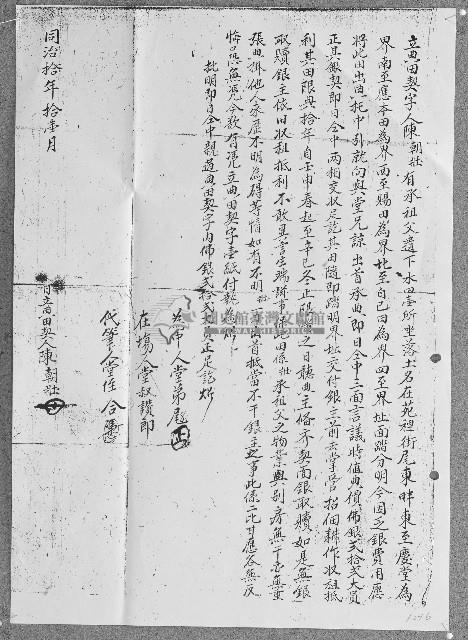 立典田契字人陳朝壯有承祖父遺下水田壹所坐落土名在苑裡街尾東畔東至慶堂為
界南至應本田為界西至賜田為界北至自己田為界四至界址面踏分明今因乏銀費用愿
將此田出典托中引就向與堂兄諒出首承典即日仝中三面言議時值典價佛銀弍拾大員
正其銀契即日仝中兩相交收足訖其田隨即踏明界址交付銀主前去掌管招佃耕作收租抵
利其田限典拾年自壬申春起至辛巳冬止限滿之日聽典主備齊契面銀取贖如是無銀
取贖銀主依旧收租抵利不敢異言生端滋事保此田係壯承祖父之物業與別房無干亦無重
張典掛他人來歷不明為碍等情如有不明壯出首抵當不干銀主之事此係二比甘愿各無反
悔恐口無憑今欲有憑立典田契字壹紙付執為炤
批明即日仝中親過典田契字內佛銀弍拾大員正足訖炤
為中人堂弟尾
在塲人堂叔讚郎
代筆人堂侄合
同治拾年拾壹月 日立典田契人陳朝壯
1246